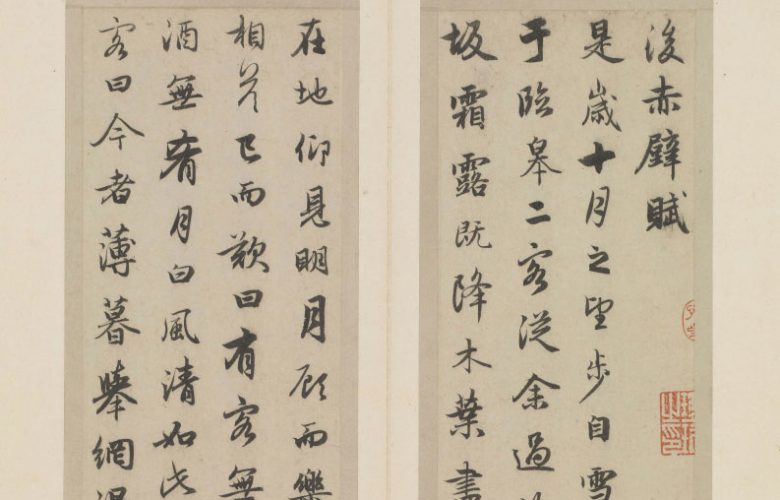 後赤壁賦
是歲十月之望步自雪
于臨皋二客從余過
坂霜露既降木葉盡
在地仰見明月顧而樂
相答已而歎曰有客無
酒無肴月白風清如此
客曰今者薄暮舉網得